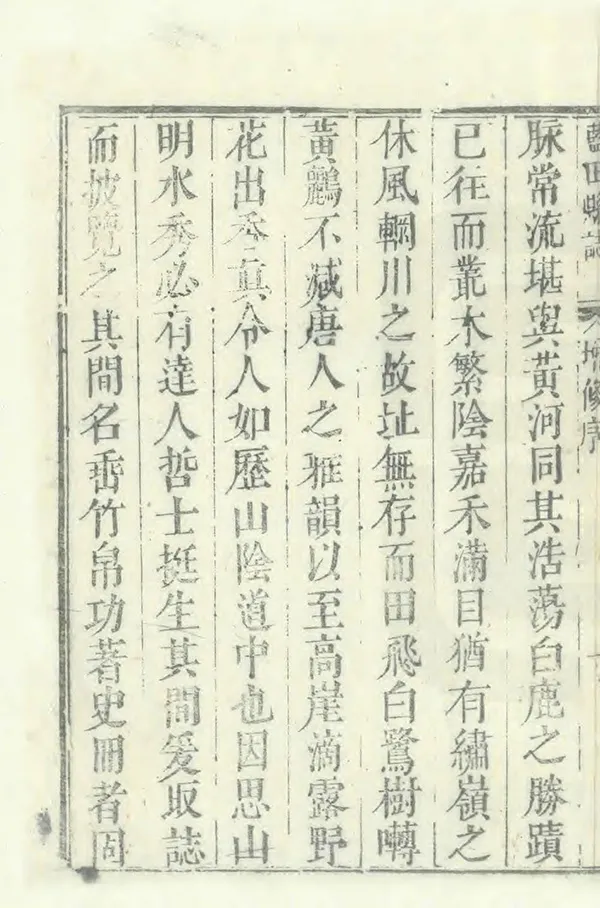 藍田縣誌 增修序
脉常流堪與黃河同其浩蕩白鹿之勝蹟
已往而叢木繁陰嘉禾滿目猶有繡嶺之
休風輞川之故址無存而田飛白鷺樹囀
黃鸝不减唐人之雅韻以至高崖滴露野
花出秀真令人如歷山陰道中也因思山
明水秀必有達人哲士挺生其間爰取誌
而披覽之其間名垂竹帛功著史冊者固